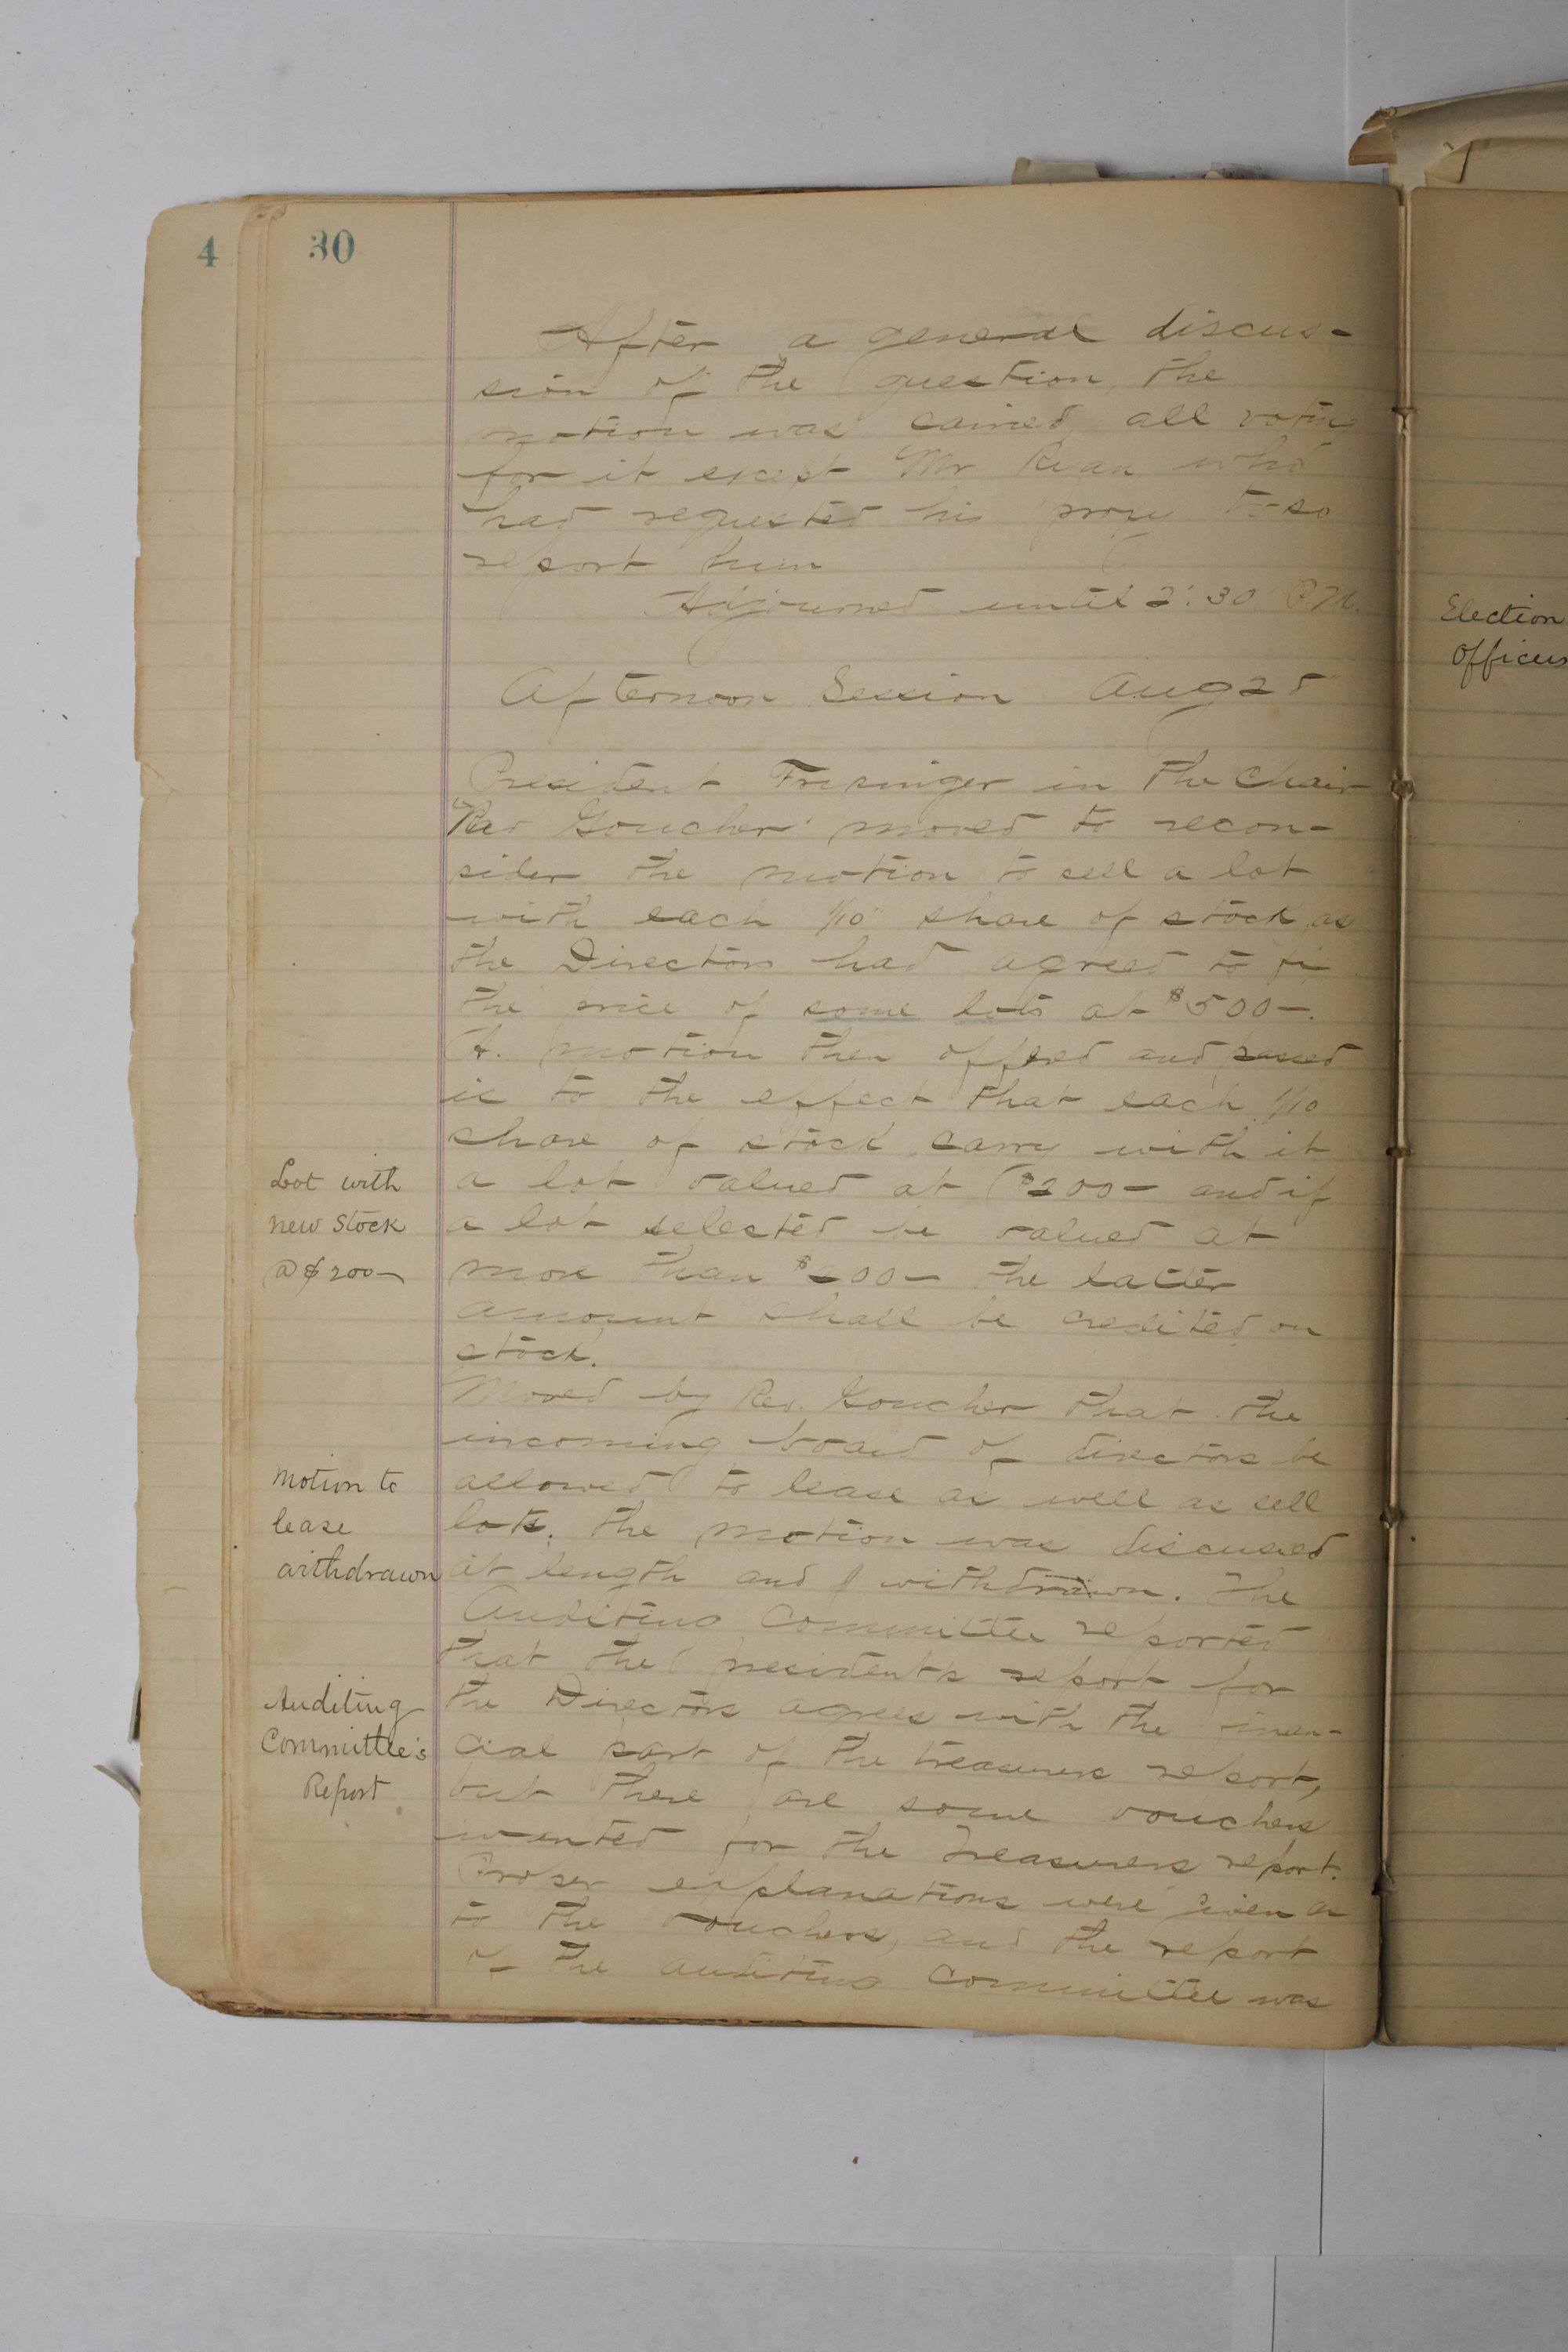 4
30
After a general discus-
sion of the question, the
motion was carried, all voting
for it except Mr Ryan who
had requested his proxy to so
report him
Adjourned until 2:30 P.M.
Afternoon Session Aug 25
President Fresinger in the Chair
Rev Goucher moved to recon-
sider the motion to sell a lot
with each 1/10 share of stock as
the Directors had agreed to fix
the price of some lots at $500-.
A. motion then offered and passed
is to the effect that each 1/10
share of stock carry with it
a lot valued at $200- and if
a lot selected be valued at
more than $200- the latter
amount shall be credited on
stock.
Moved by Rev. Goucher that the
incoming board of directors be
allowed to lease as well as sell
lots. The motion was discussed
at length and withdrawn. The
Auditing Committee reported
that the president's report for
the Directors agrees with the finan-
cial part of the treasurers report,
but there are some vouchers
wanted for the Treasurers report.
Proper explanations were given as
to the vouchers, and the report
of the auditing Committee was
Lot with
new Stock
@ $200-
Motion to
lease
withdrawn
Auditing
Committee's
Report
Election
Officers